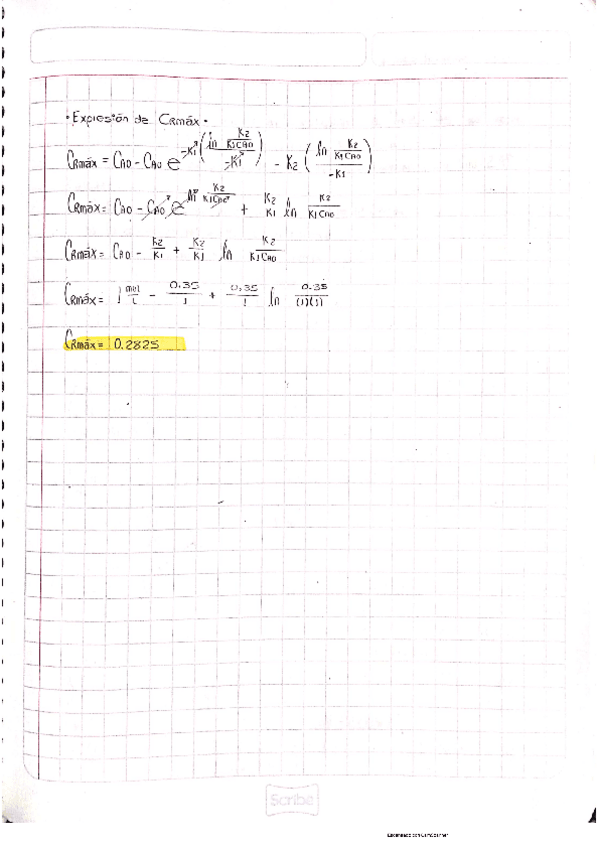 • Expresión de CRmáx •
CRmáx = CAO - CAO e^(-K1 (ln K2/K1CAO / -K1)) - K2 (ln K2/K1CAO / -K1)
CRmáx = CAO - CAO e^(ln K2/K1CAO) + K2/K1 ln K2/K1CAO
CRmáx = CAO - K2/K1 + K2/K1 ln K2/K1CAO
CRmáx = 1 mol/L - 0.35/1 + 0.35/1 ln 0.35/(1)(1)
CRmáx = 0.2825
Scribe
Escaneado con CamScanner